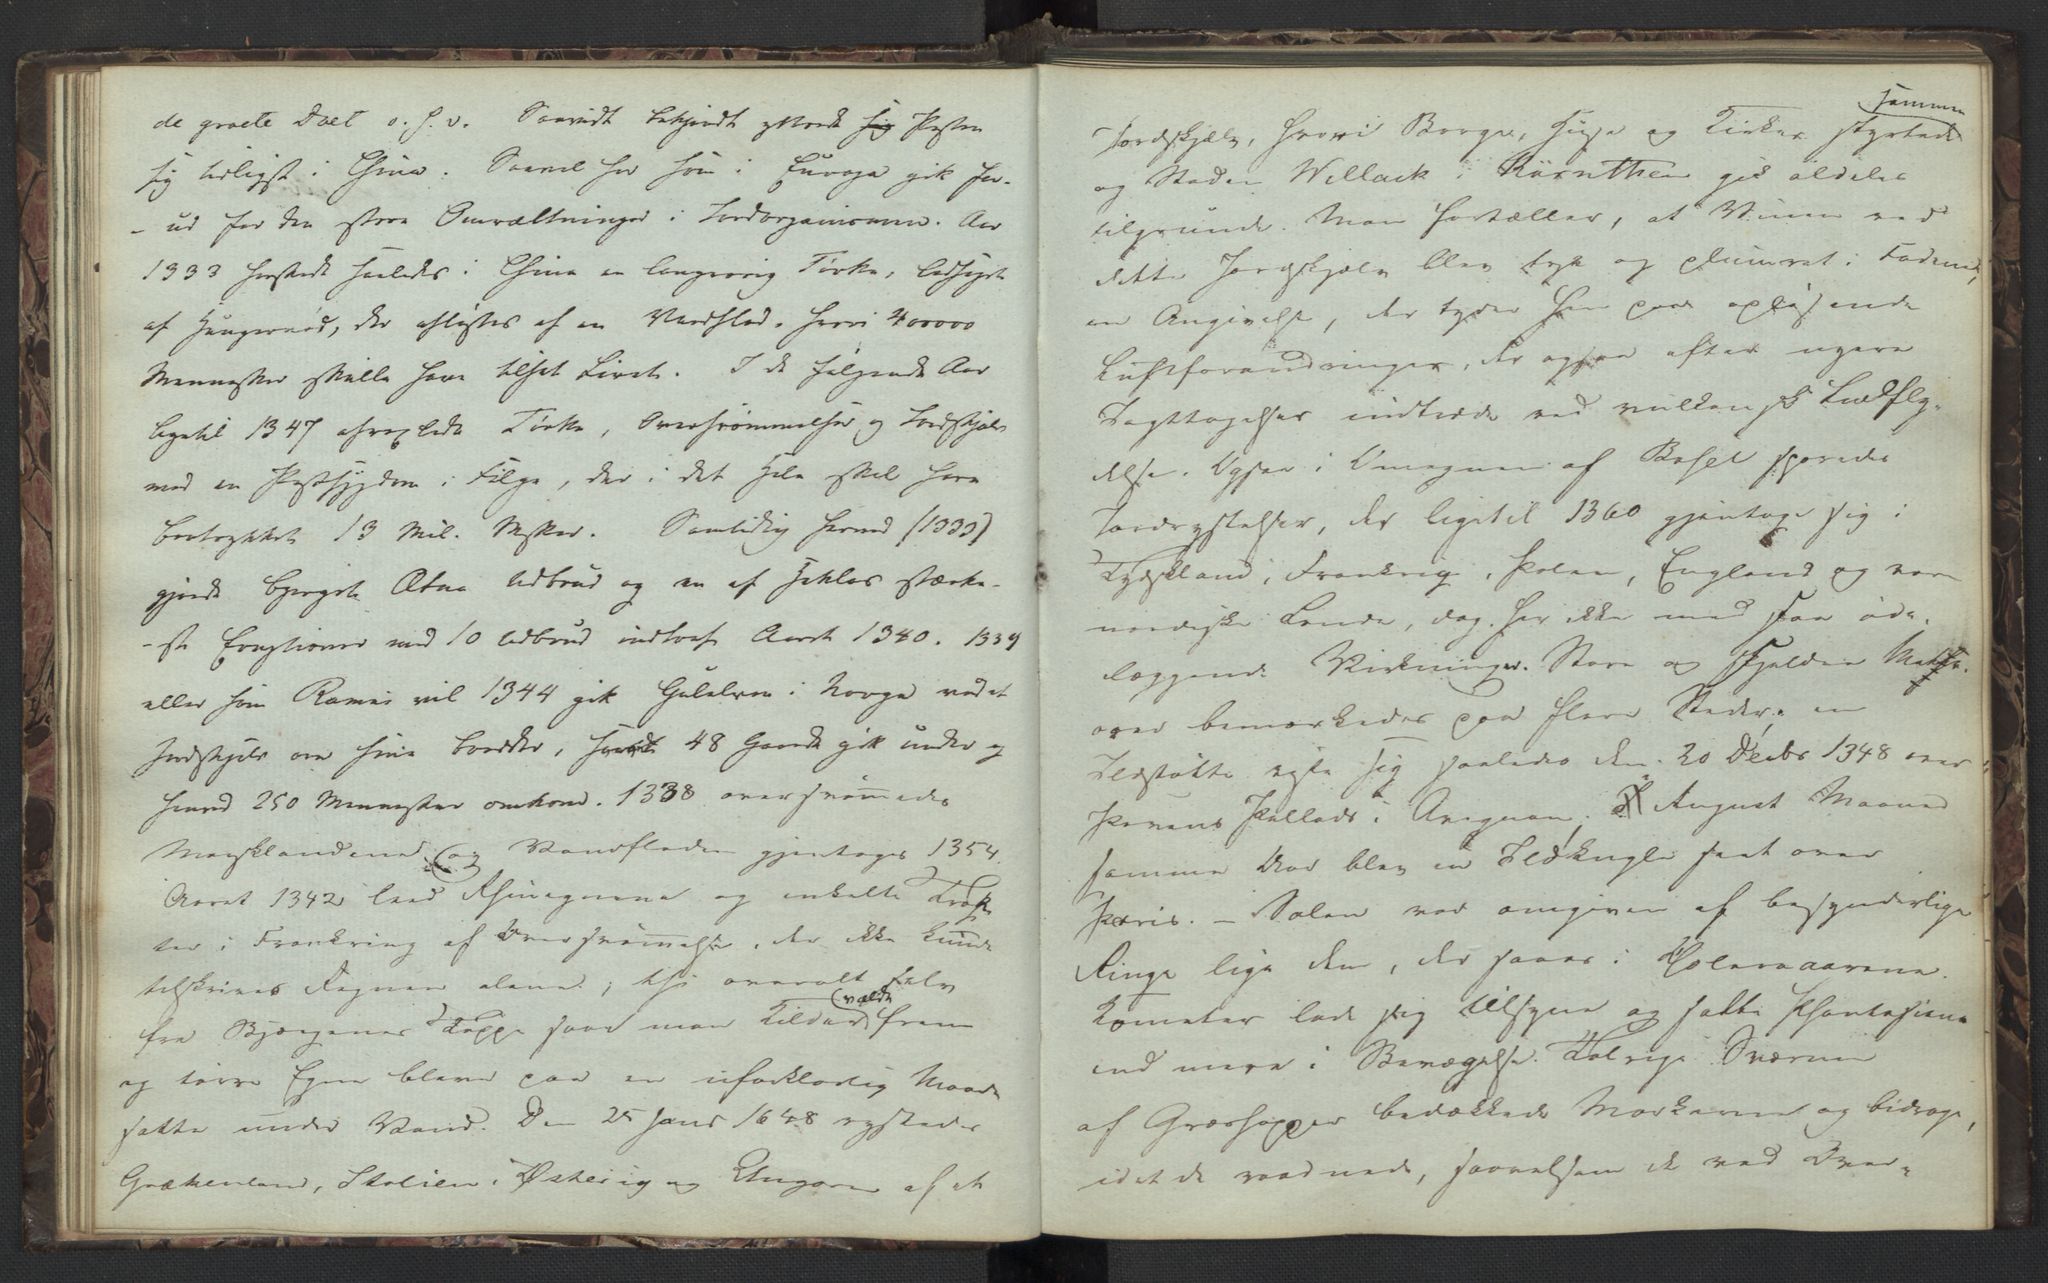 de groete Doet o. s. v. Saavidt bekjendt yttrede sig Pesten
sig tidligst i China. Saavel her som i Europa gik for-
-ud for den store Omvæltninger i Jordorganismen. Aar
1333 herskede saaledes i China en langvarig Tørke, ledsaget
af Hungersnød, der afløstes af en Vandflod, hvori 400000
Mennesker skulle have tilsat Livet. I de følgende Aar
ligetil 1347 afvexlede Tørke, Oversvømmelser og Jordskjælv
med en Pestsygdom i Følge, der i det Hele skal have
bortrykket 13 Mil. Msker. Samtidig herved (1333)
gjorde bjerget Ætna Udbrud og en af Heklas stærke-
-ste Eruptioner med 10 Udbrud indtraf Aaret 1340. 1339
eller som Ramus vil 1344 gik Gulelven i Norge ved et
Jordskjælv over sine bredder, hvorved 48 Gaarde gik under og
hvorved 250 Mennesker omkom. 1338 oversvømmedes
Marsklandene og Vandfloden gjentoges 1354.
Aaret 1342 leed Rhinegnene og enkelte Trak-
ter i Frankrig af Oversvømmelse, der ikke kunde
tilskrives Regnen alene; thi overalt selv
fra Bjergenes Toppe saae man Kilder vælde frem
og tørre Egne bleve paa en uforklarlig Maade
satte under Vand. Den 25 Janr 1648 rystedes
Grækenland, Italien, Østerig og Ungarn af et
Jordskjælv, hvori Borge, Huse og Kirker styrtede sammen
og Staden Willach i Kärnthen gik aldeles
tilgrunde. Man fortæller, at Vinen ved
dette Jordskjælv blev tyk og plumret i Fadene,
en Angivelse, der tyder hen paa opløsende
Luftforandringer, der ogsaa efter nyere
Iagttagelser indtræde ved vulkansk Ildfly-
delse. Ogsaa i Omegnen af Basel sporedes
Jordrystelser, der ligetil 1360 gjentoge sig i
Tydskland, Frankrig, Polen, England og vore
nordiske Lande, dog her ikke med saa øde-
læggende Virkninger. Store og sjeldne Mete-
orer bemærkedes paa flere Steder, en
Ildstøtte viste sig saaledes den 20 Decbr 1348 over
Pavens Pallads i Avignon. I August Maaned
samme Aar blev en Ildkugle seet over
Paris. – Solen var omgiven af besynderlige
Ringe lige dem, der saaes i Koleraaarene.
Kometer lode sig tilsyne og satte Phantasien
end mere i Bevægelse. Talrige Sværme
af Græshopper bedækkede Markerne og bidroge,
idet de raadnede, saavelsom de ved Over-